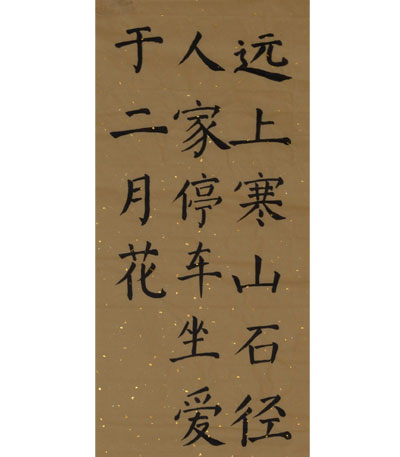 远上寒山石径
人家停车坐爱
于二月花